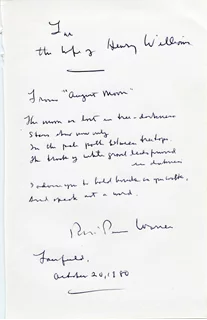 For
the wife of Henry William
From "August Moon"
The moon is lost in tree-darkness
Stars show now only
In the pale path between treetops
The track of white gravel leads forward
in darkness
I advise you to hold breath as you walk,
And speak not a word.
Warren
Fairfield,
October 20, 1980